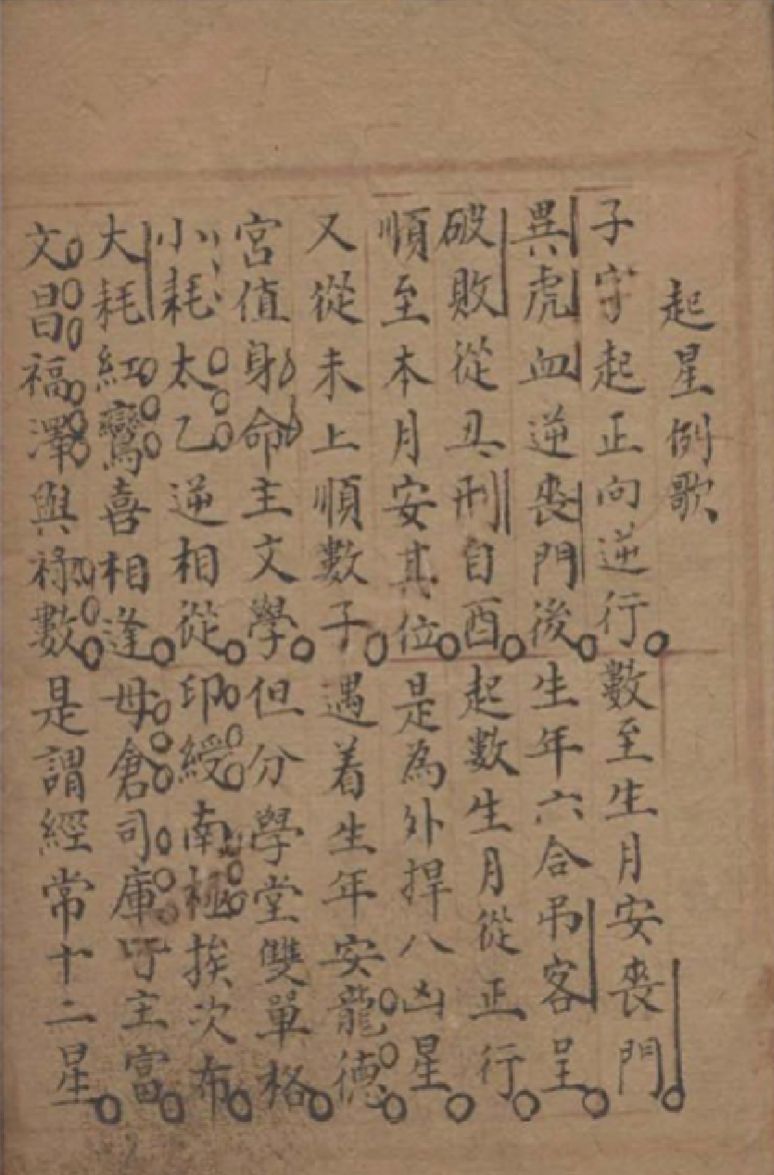 起星例歌
子字起正向逆行數至生月安喪門
異虎血逆喪門後生年六合吊客呈
破敗從丑刑自酉起數生月從正行
順至本月安其位是為外捍八凶星
又從未上順數子遇着生年安龍德
宮值身命主文學但分學堂雙單格
小耗太乙逆相從印綬南極挨次布
大耗紅鸞喜相逢母倉司庫主富
文昌福澤與祿數是謂經常十二星